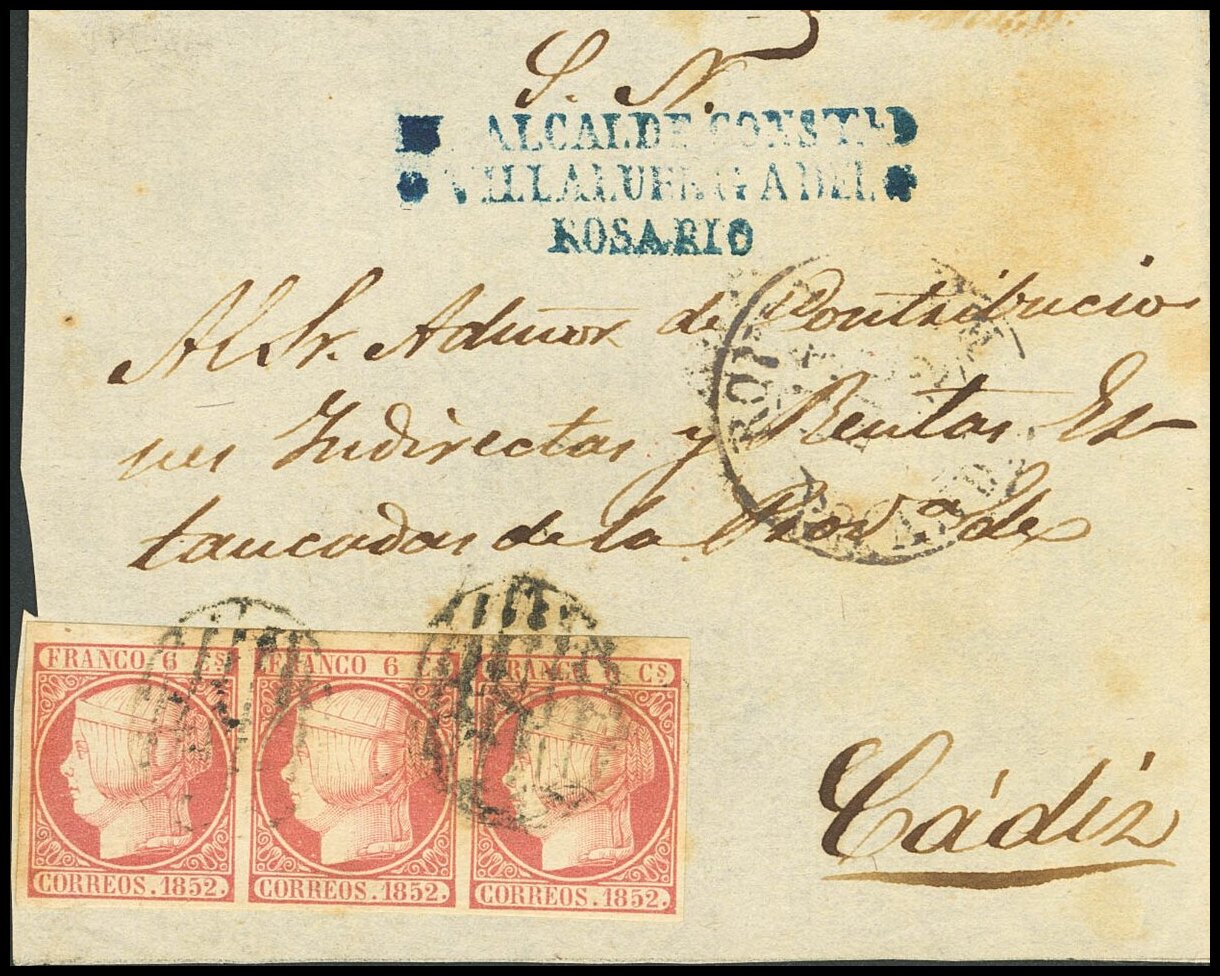 S. N.
ALCALDE CONSTL
VILLALUENGA DEL
ROSARIO
Al Sr. Admor de Contribucio
nes Indirectas y Rentas Es-
tancadas de la Prova de
Cádiz
FRANCO 6 Cs FRANCO 6 Cs FRANCO 6 Cs
CORREOS.1852. CORREOS.1852. CORREOS.1852.